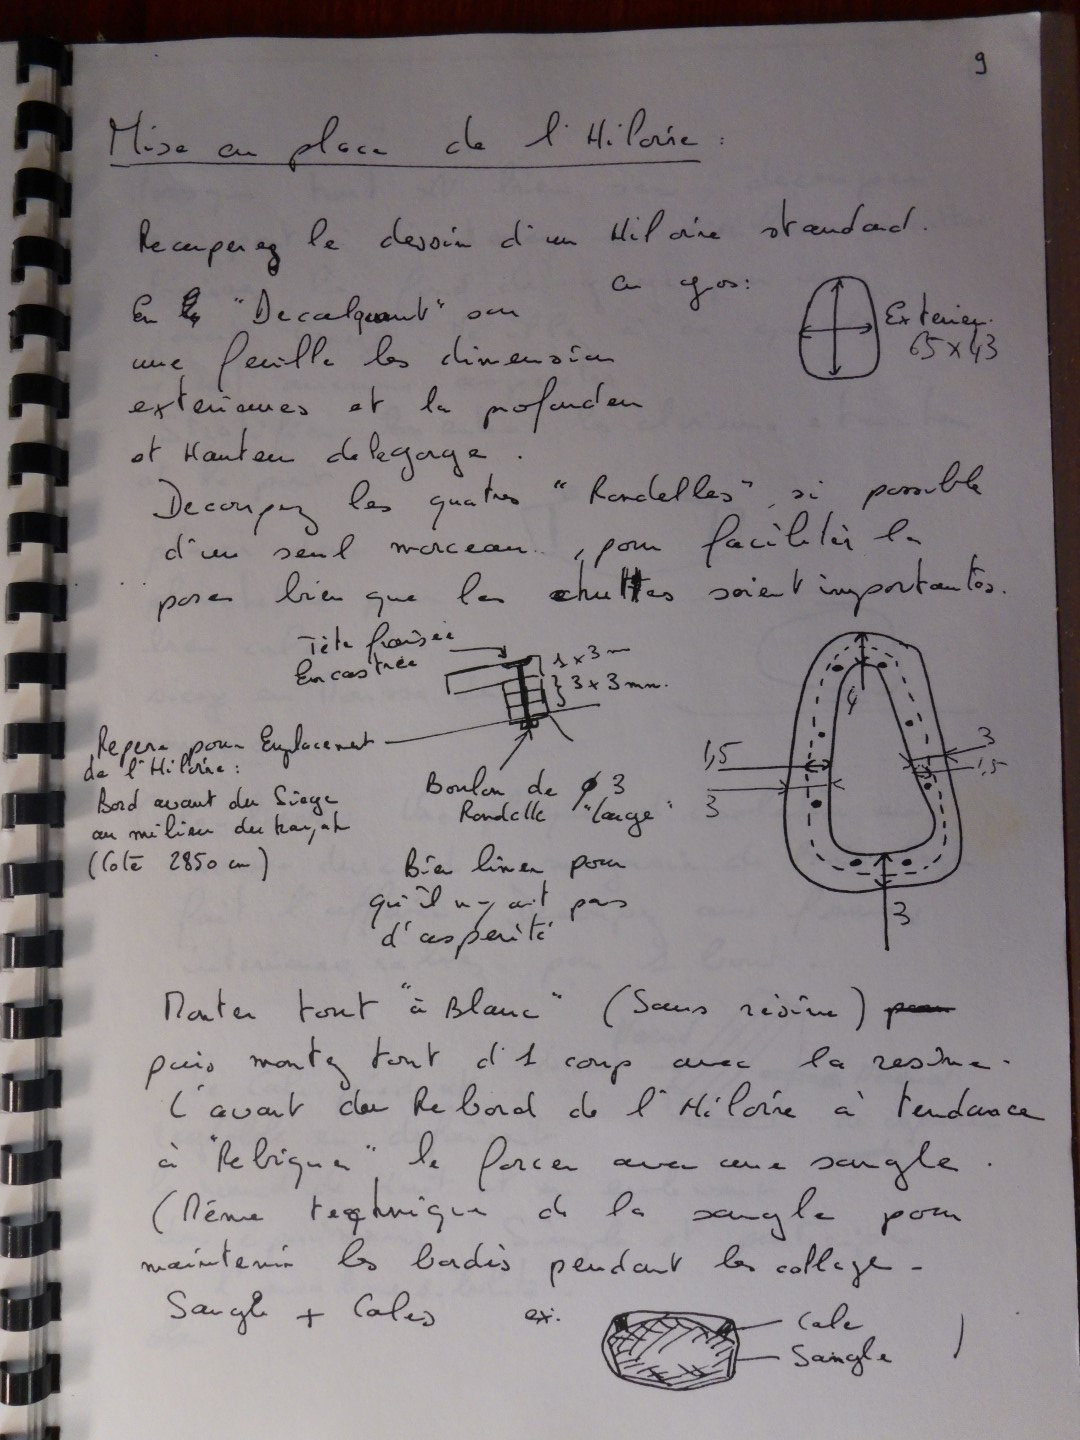 9
Mise en place de l'Hiloire :
Recuperez le dessin d'un Hiloire standard.
en gros:
En "Decalquant" sur
une feuille les dimension
exterieures et la profondeur
et Hauteur de la gorge.
Exterieur.
65 x 43
Decoupez les quatres "Rondelles", si possible
d'un seul morceau.. , pour faciliter la
pose bien que les chuttes soient importantes.
Tête fraisée
Encastrée
1 x 3 m
3 x 3 mm.
Repere pour Emplacement
de l'Hiloire :
Bord avant du Siege
au milieu du
(Coté 2850 cm)
Boulon de ϕ 3
Rondelle "large"
Bien limer pour
qu'il n-y ait pas
d'asperité
4
1,5
3
3
1,5
3
Monter tout "à Blanc" (Sans résine)
puis montez tout d'1 coup avec la resine.
L'avant du Rebord de l'Hiloire à tendance
à "Rebiquer" le forcer avec une sangle.
(Même technique de la sangle pour
maintenir les bordés pendant les collage.
Sangle + Cales ex:
Cale
Sangle
)